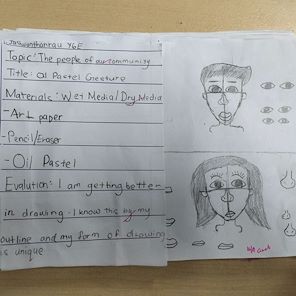 Y6E
Topic: The people of our community
Title: Oil Pastel Creature
Materials: Wet Media/Dry Media
-Art paper
-Pencil/Eraser
-Oil Pastel
Evalution: I am getting better
in drawing. I know this by my
outline and my form of drawing
is unique